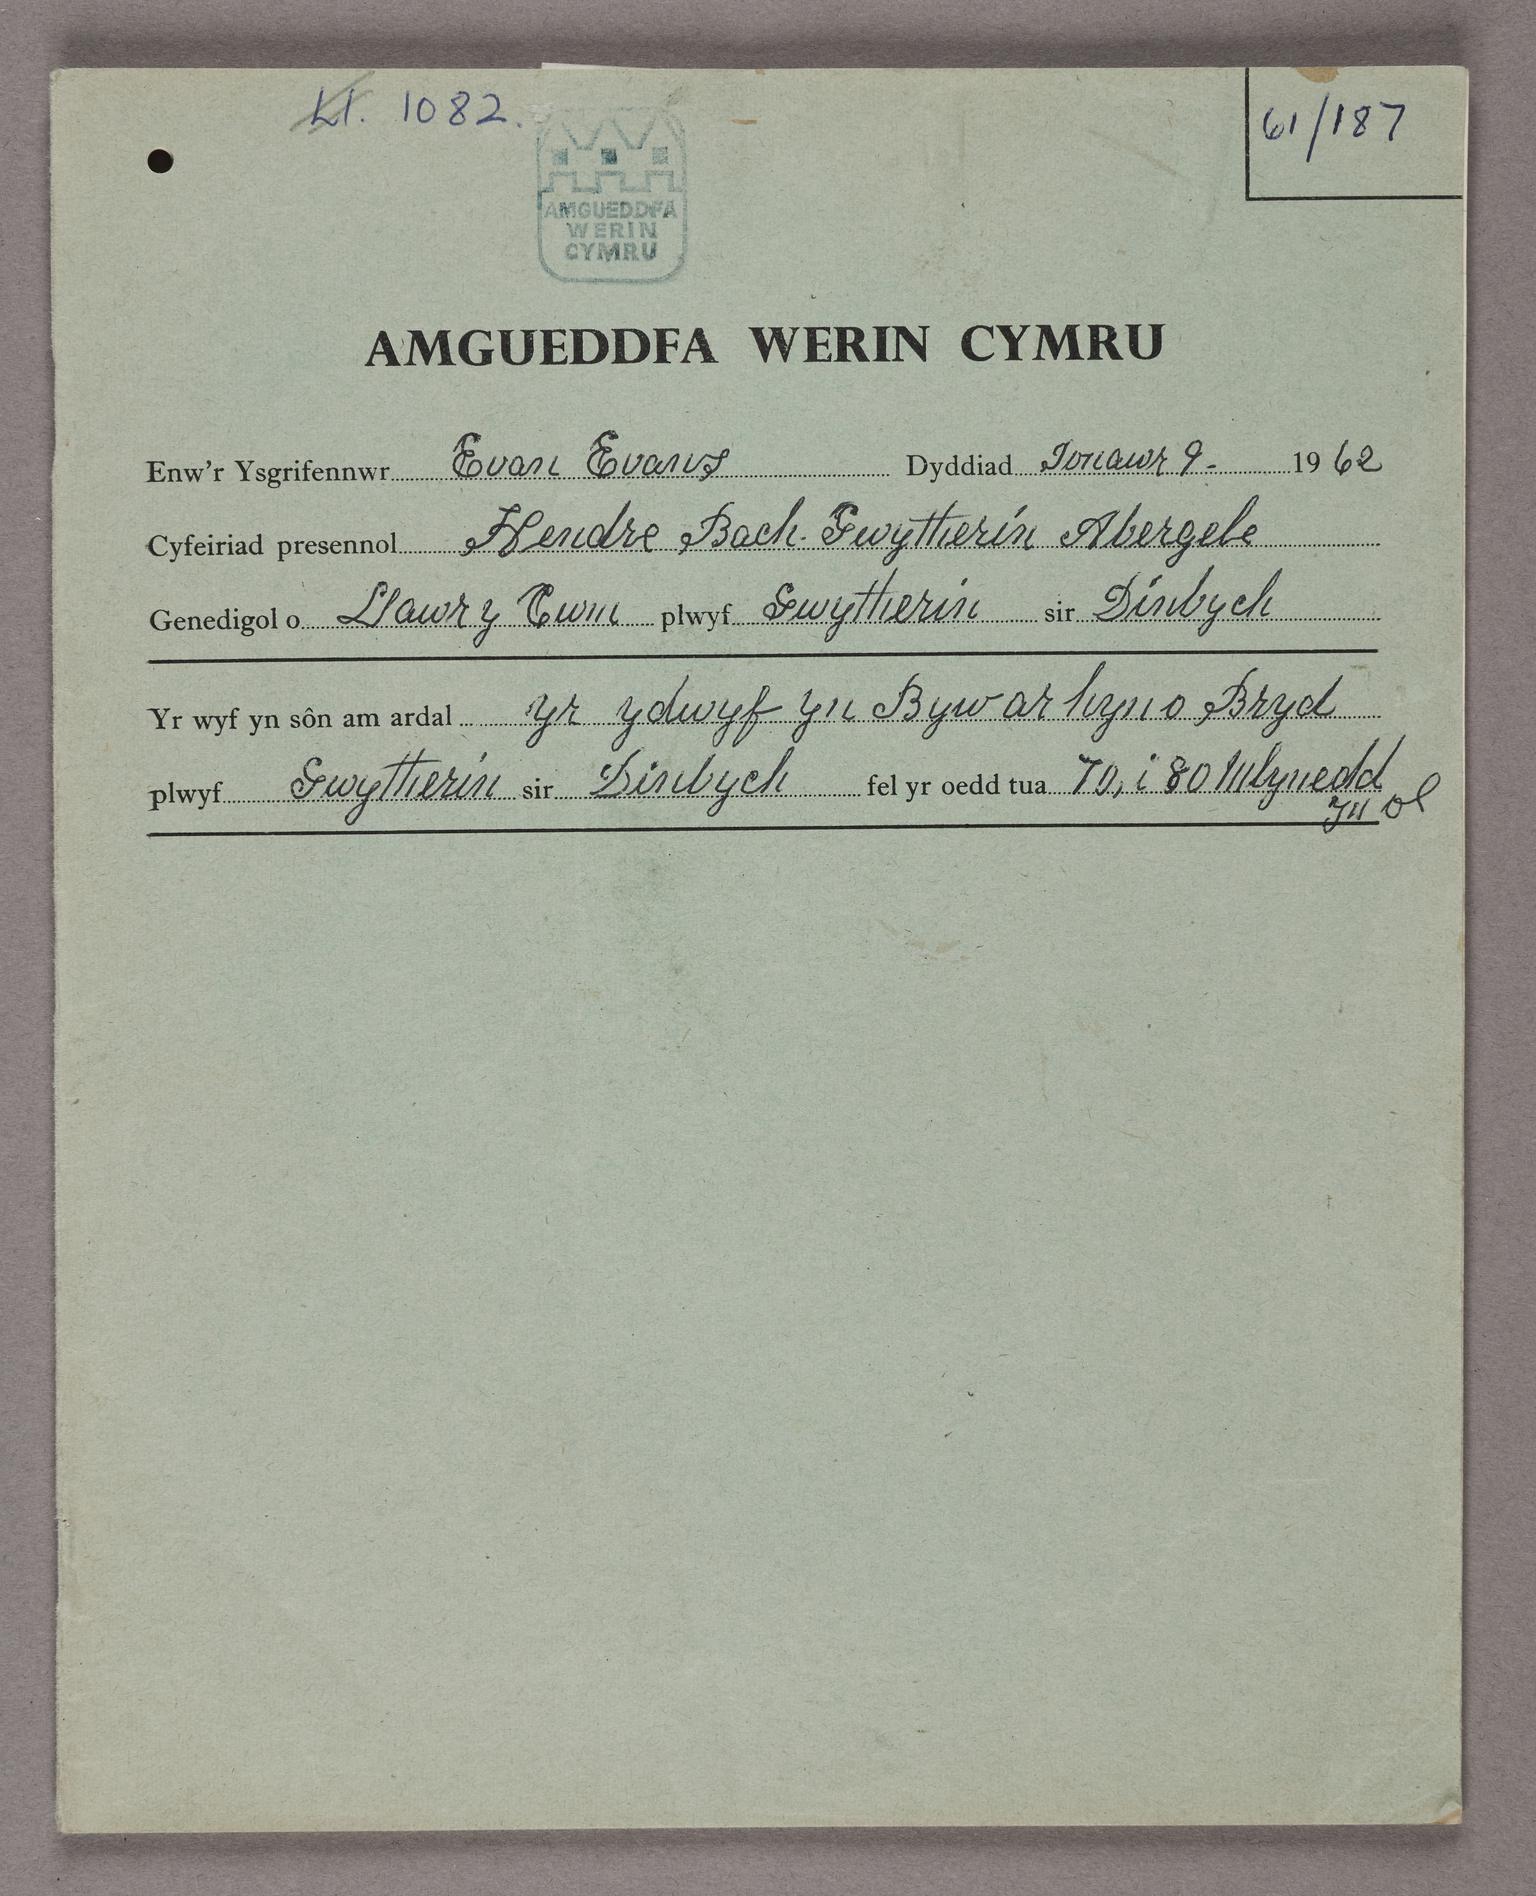 Ll. 1082.
61/187
AMGUEDDFA
WERIN
CYMRU
AMGUEDDFA WERIN CYMRU
Enw'r Ysgrifennwr Evan Evans Dyddiad Ionawr 9. 1962
Cyfeiriad presennol Hendre Bach. Gwytherin Abergele
Genedigol o Llawr y Cwm plwyf Gwytherin sir Dinbych
Yr wyf yn sôn am ardal yr ydwyf yn Byw ar hyn o Bryd
plwyf Gwytherin sir Dinbych fel yr oedd tua 70, i 80 Mlynedd
yn ol